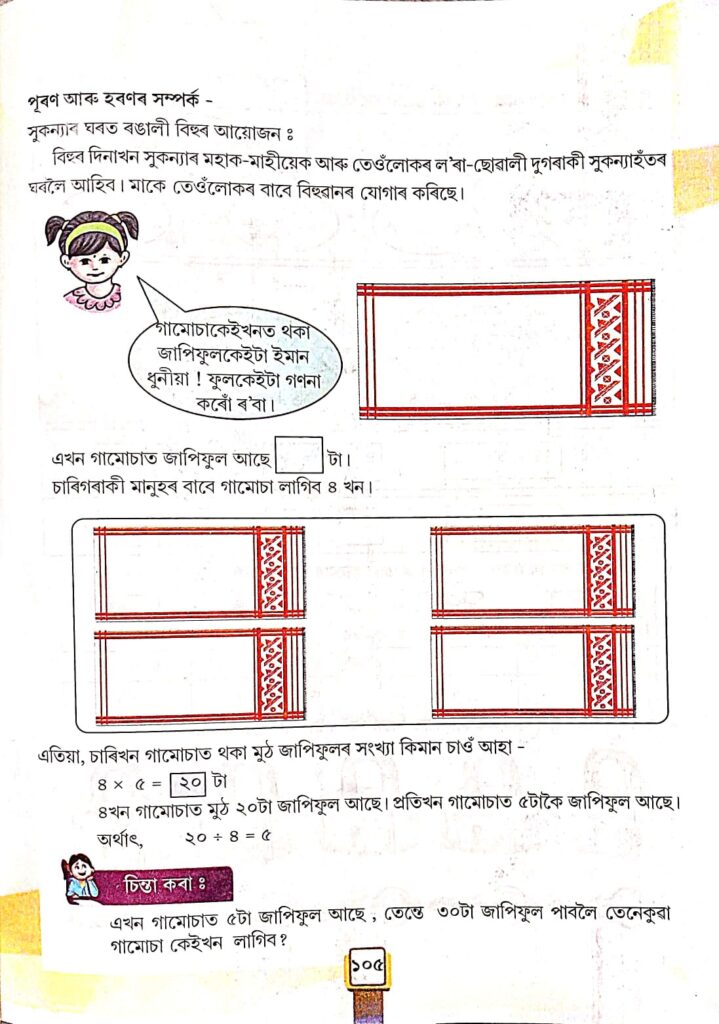 পূৰণ আৰু হৰণৰ সম্পৰ্ক -
সুকন্যাৰ ঘৰত ৰঙালী বিহুৰ আয়োজন ঃ
বিহুৰ দিনাখন সুকন্যাৰ মহাক-মাহীয়েক আৰু তেওঁলোকৰ ল'ৰা-ছোৱালী দুগৰাকী সুকন্যাহঁতৰ
ঘৰলৈ আহিব। মাকে তেওঁলোকৰ বাবে বিহুৱানৰ যোগাৰ কৰিছে।
গামোচাকেইখনত থকা
জাপিফুলকেইটা ইমান
ধুনীয়া ! ফুলকেইটা গণনা
কৰোঁ ৰ'বা।
এখন গামোচাত জাপিফুল আছে টা।
চাৰিগৰাকী মানুহৰ বাবে গামোচা লাগিব ৪ খন।
এতিয়া, চাৰিখন গামোচাত থকা মুঠ জাপিফুলৰ সংখ্যা কিমান চাওঁ আহা -
৪ × ৫ = ২০ টা
৪খন গামোচাত মুঠ ২০টা জাপিফুল আছে। প্ৰতিখন গামোচাত ৫টাকৈ জাপিফুল আছে।
অৰ্থাৎ, ২০ ÷ ৪ = ৫
চিন্তা কৰা ঃ
এখন গামোচাত ৫টা জাপিফুল আছে , তেন্তে ৩০টা জাপিফুল পাবলৈ তেনেকুৱা
গামোচা কেইখন লাগিব ?
১০৫